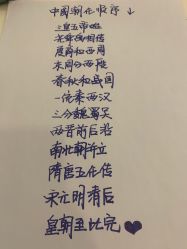 中國朝代順序↓
三皇五帝始
尧舜禹相传
夏商和西周
东周分两段
春秋和战国
一统秦两汉
三分魏蜀吴
两晋前后沿
南北朝并立
隋唐五代传
宋元明清后
皇朝至此完